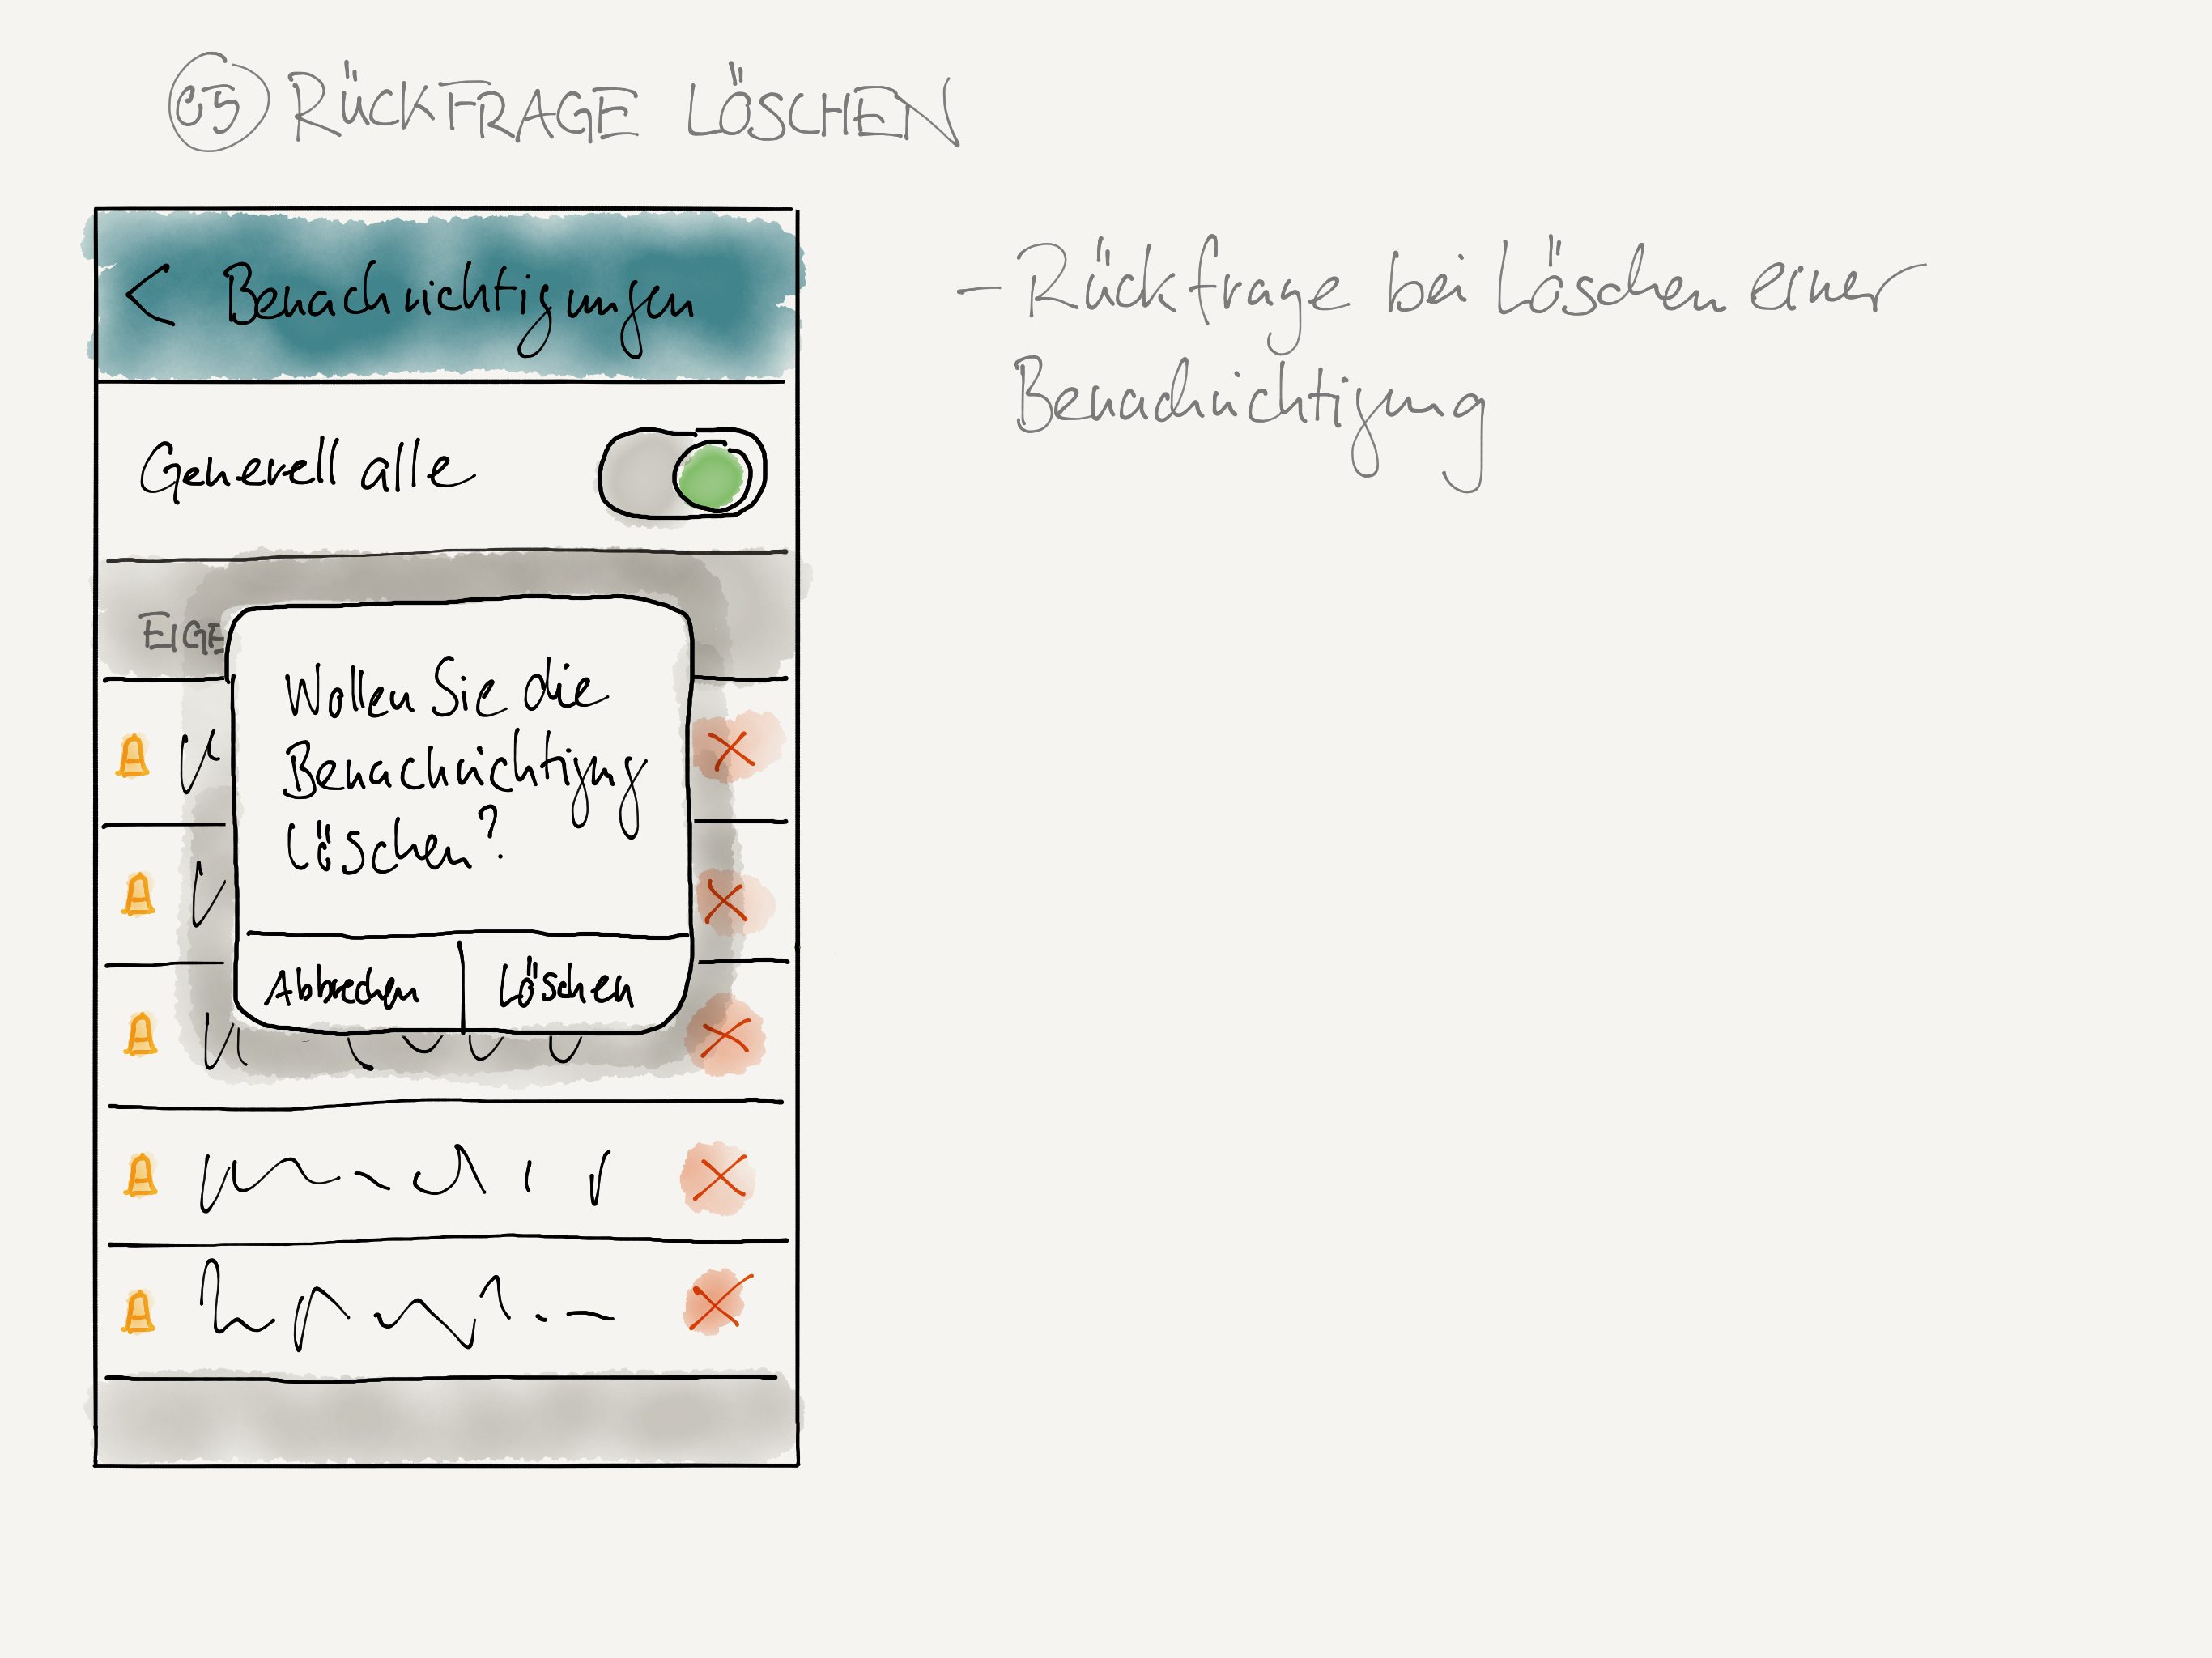 05 RÜCKFRAGE LÖSCHEN
< Benachrichtigungen
Generell alle
EIGE
Wollen Sie die
Benachrichtigung
löschen?
Abbrechen Löschen
- Rückfrage bei Löschen einer
Benachrichtigung